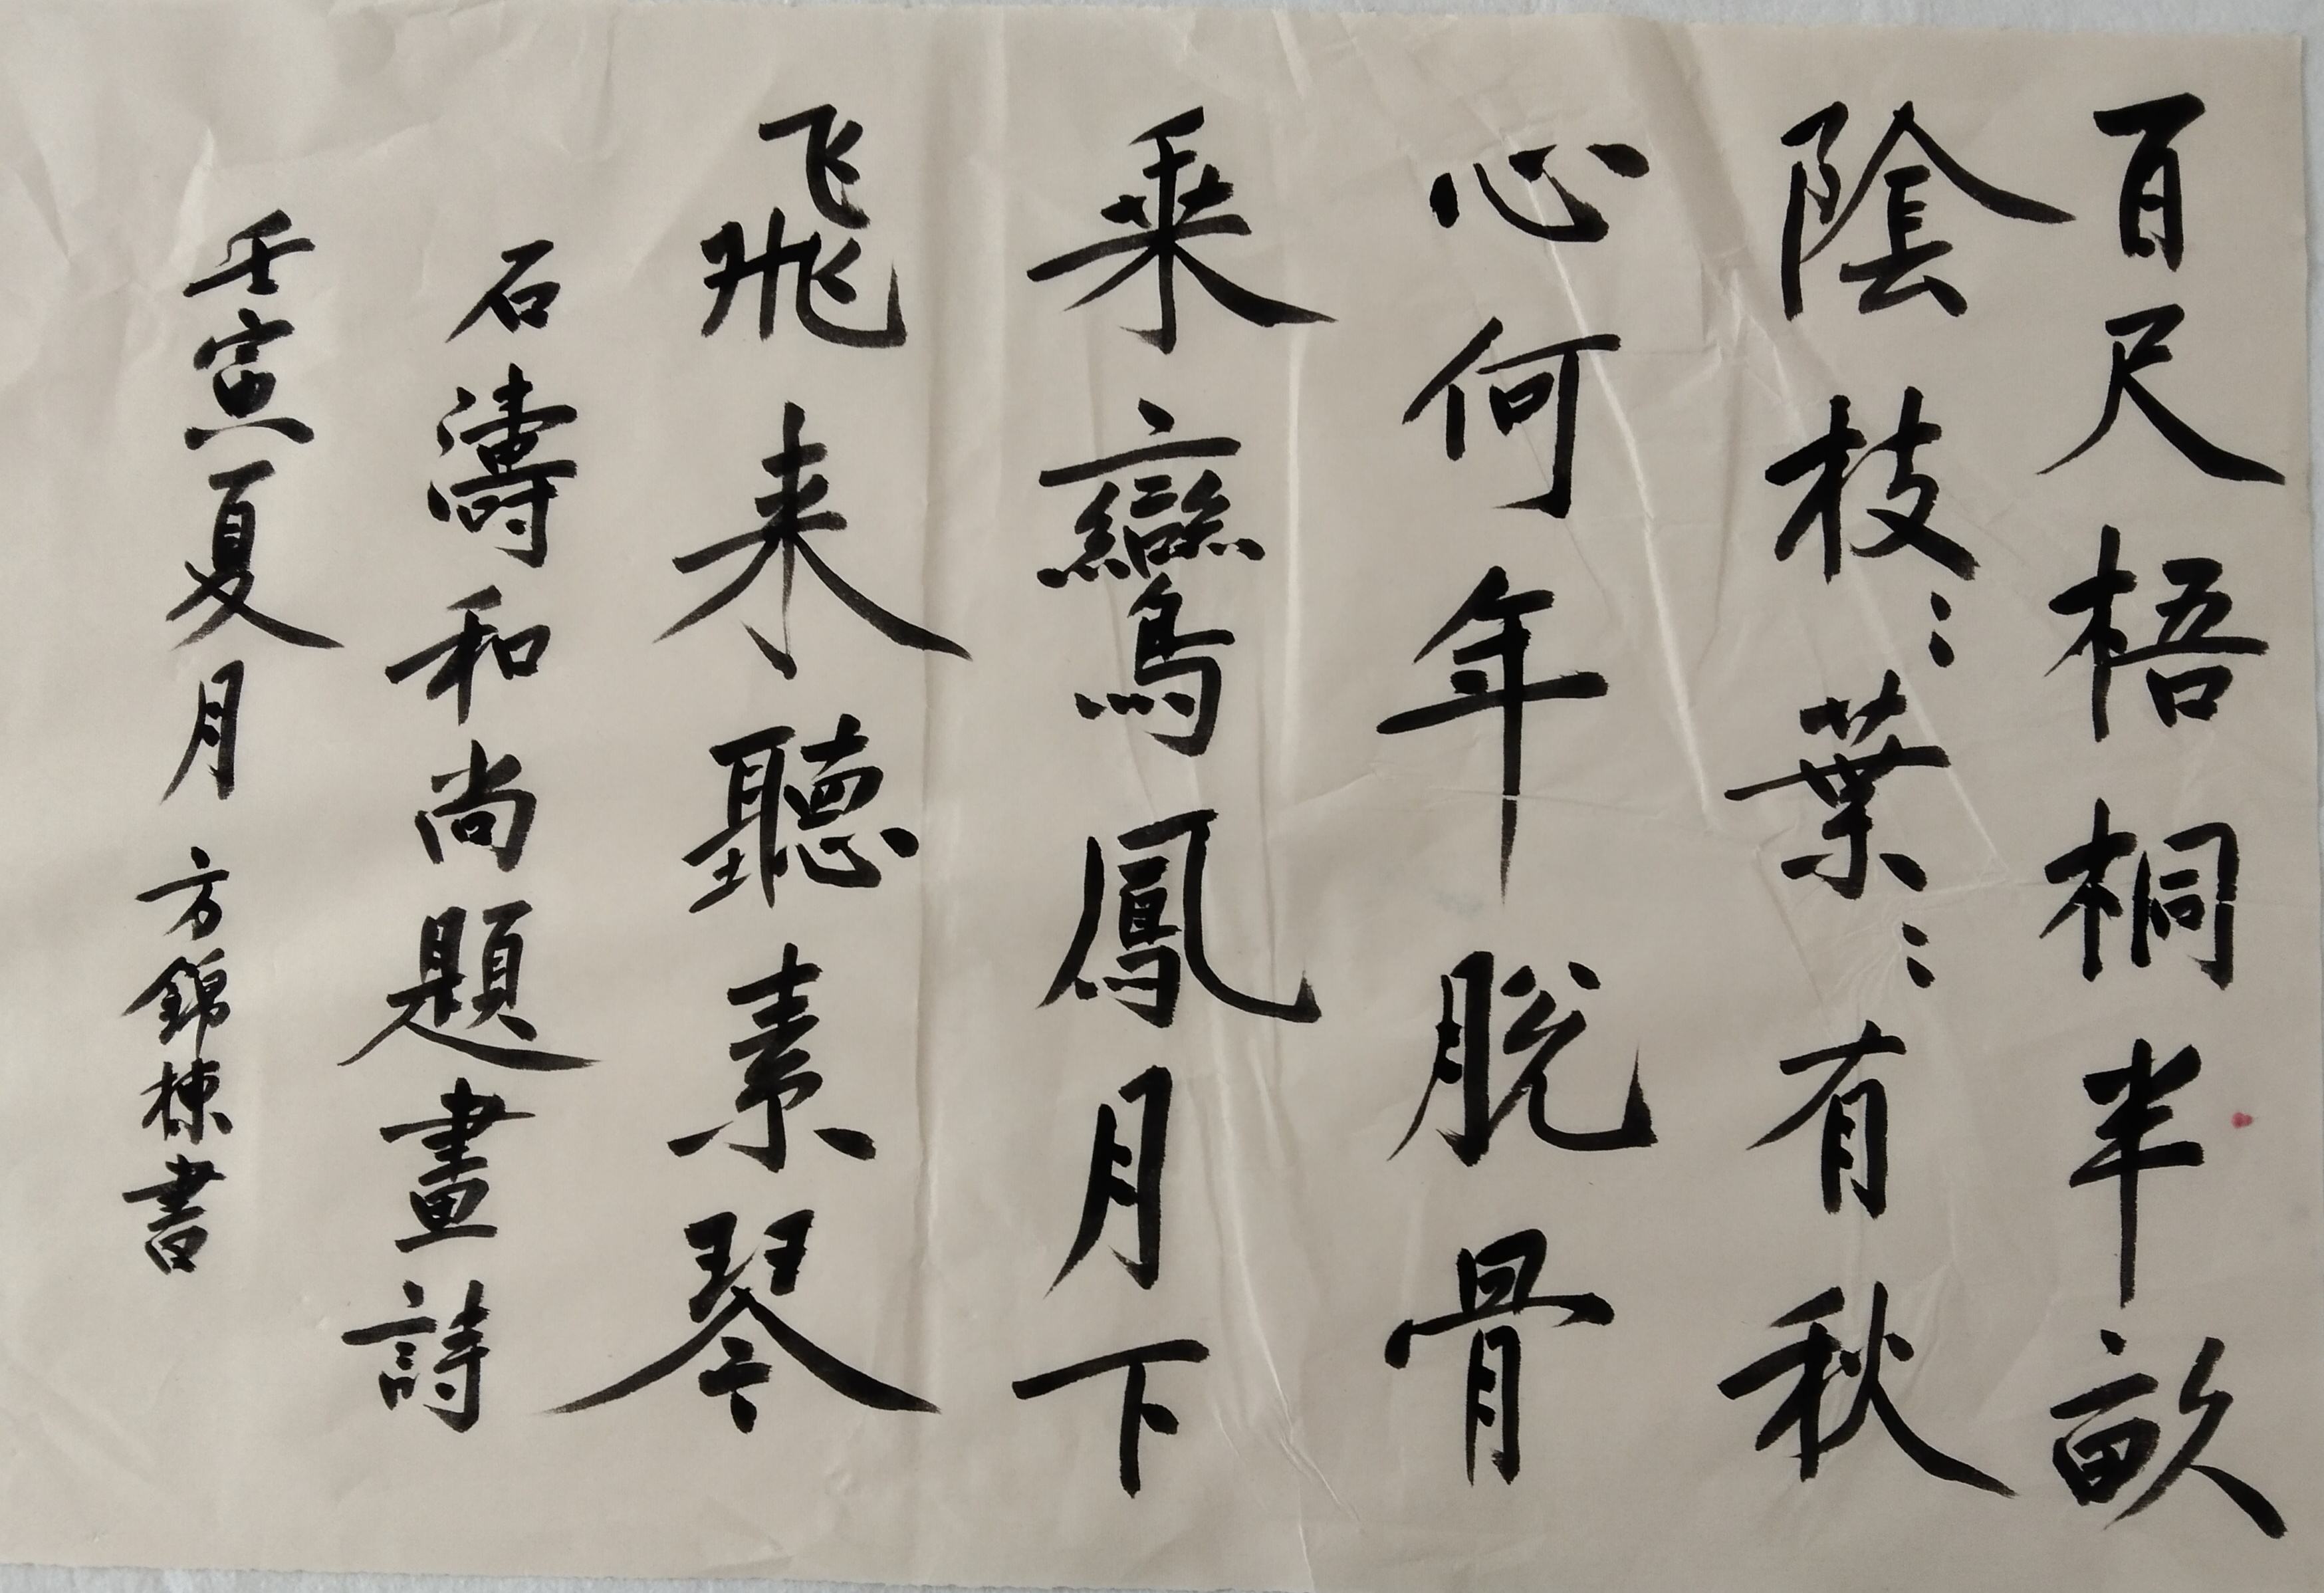 百尺梧桐半畝
陰枝〻葉〻有秋
心何年脫骨
乘鸞鳳月下
飛来聽素琴
石濤和尚題畫詩
壬寅夏月方錦棟書